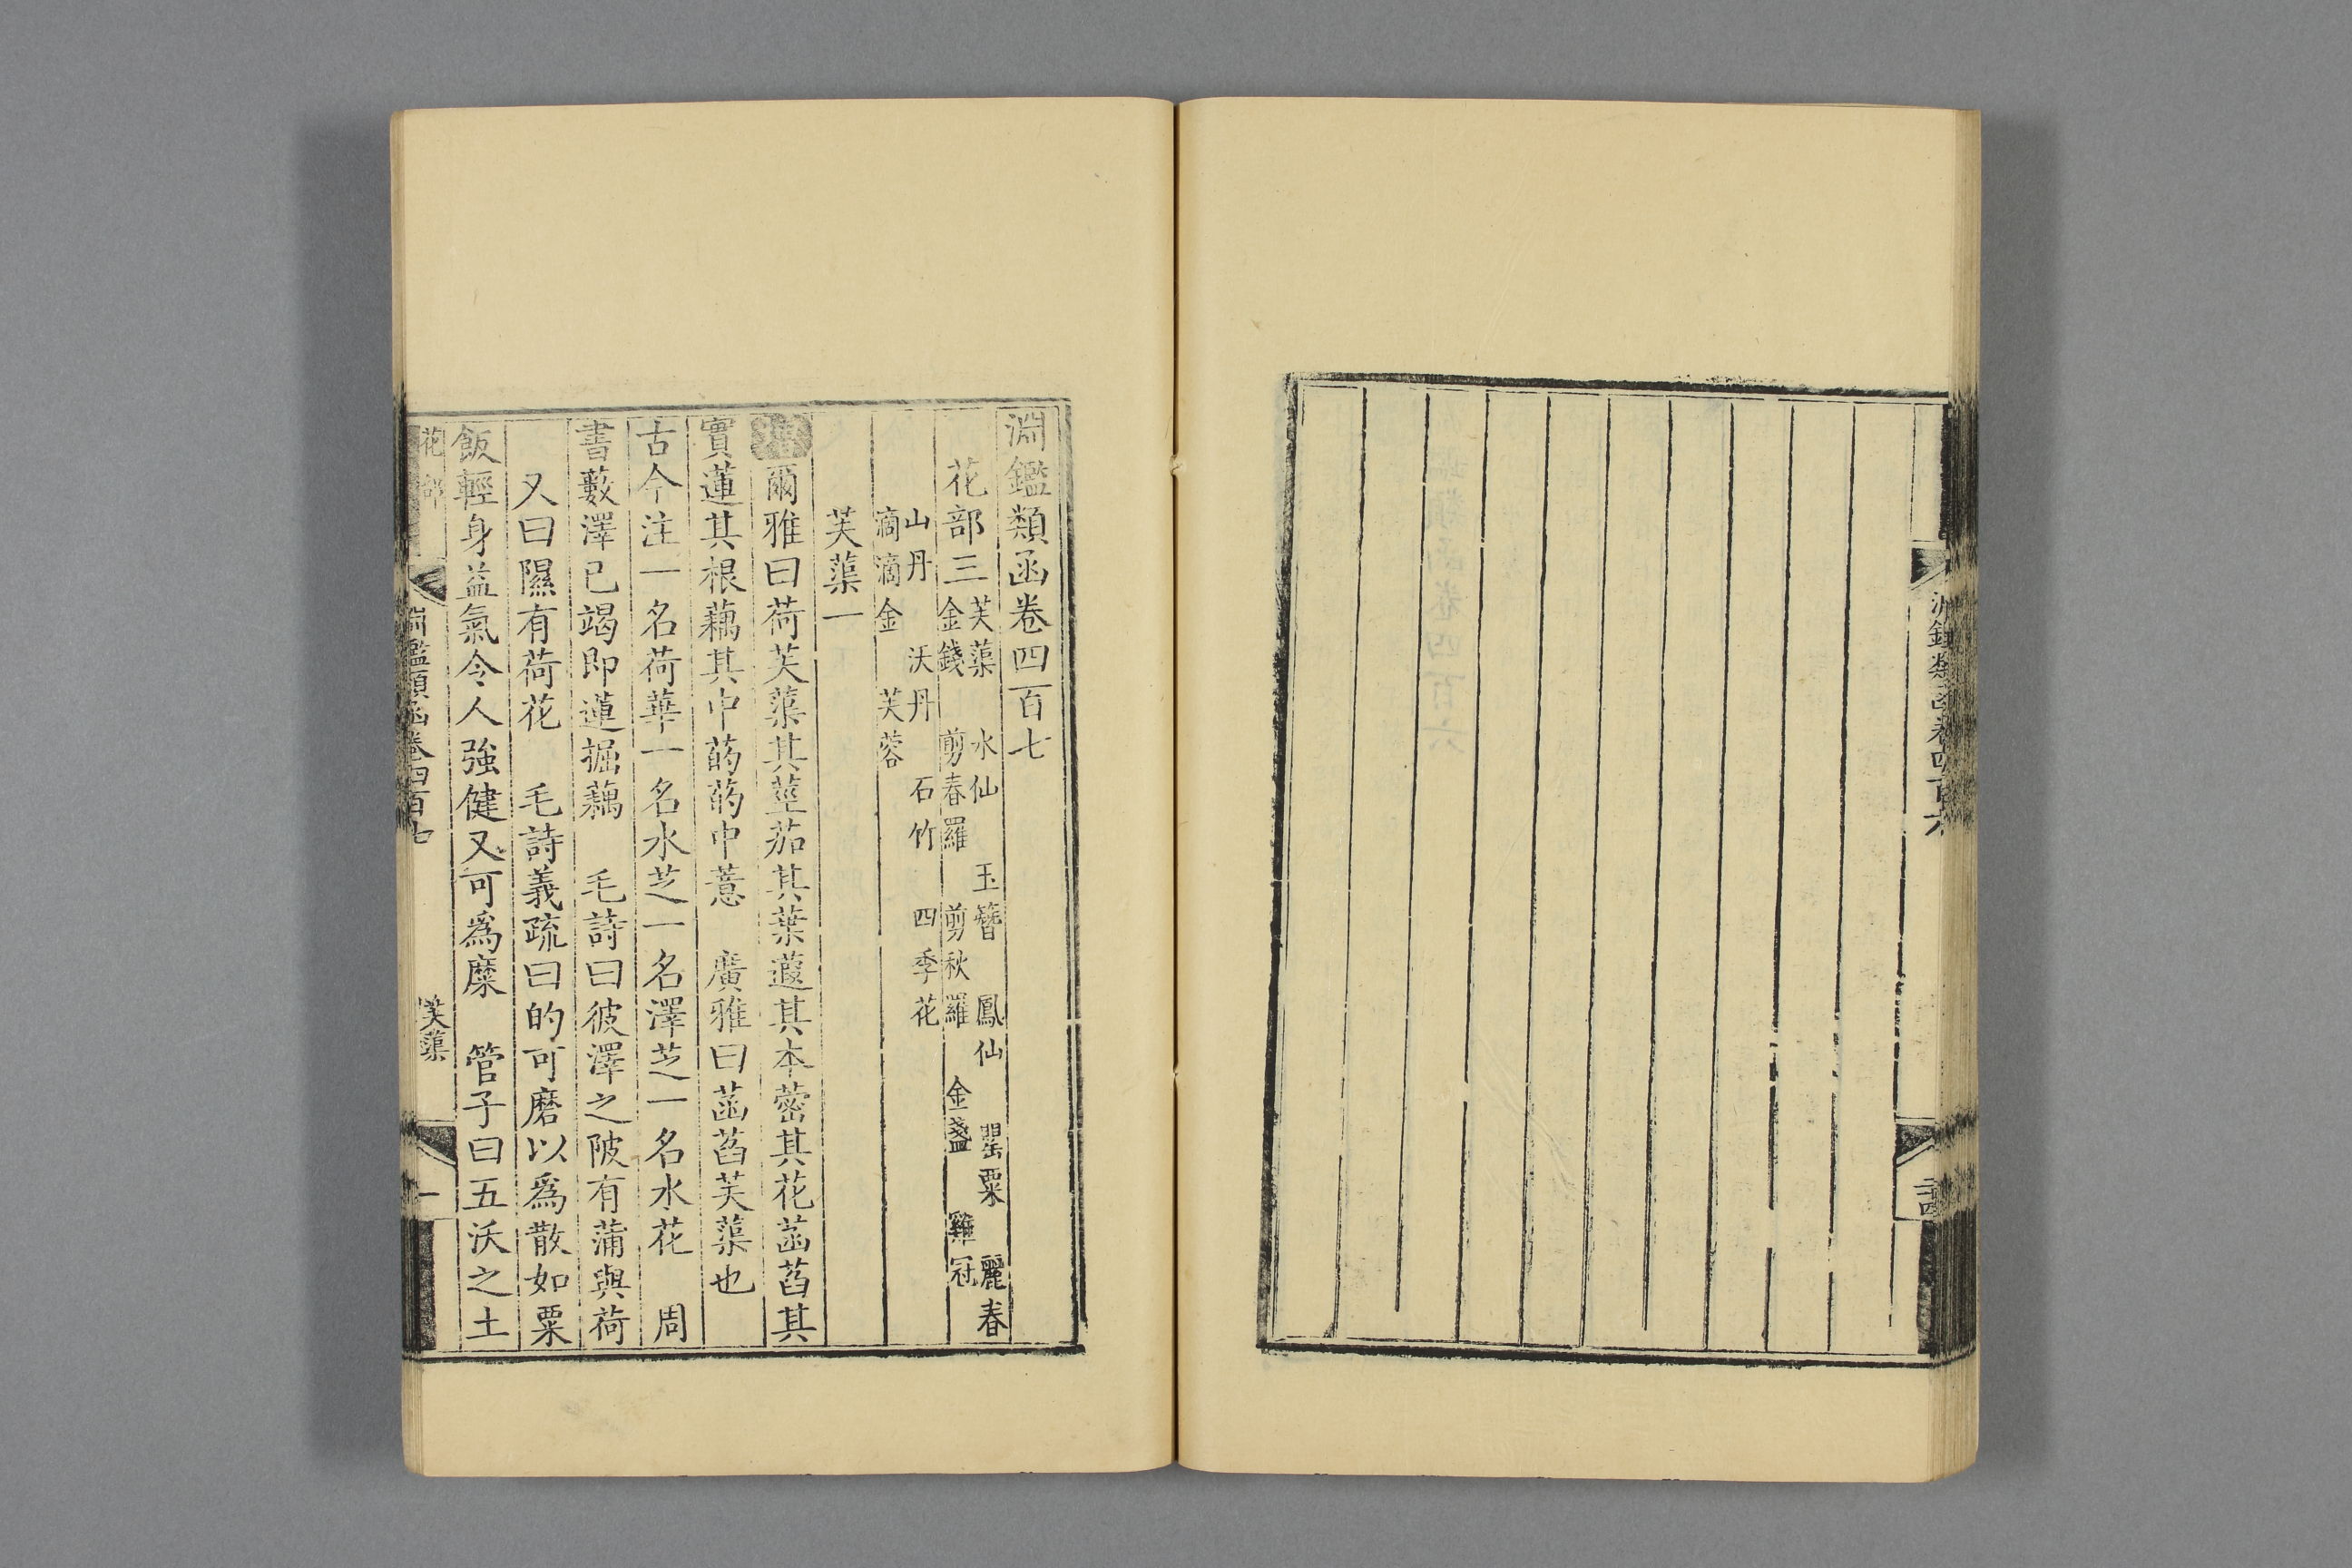 淵鑑類函卷四百六
二十四
淵鑑類函卷四百七
花部三 芙蕖 水仙 玉簪 鳳仙 罌粟 麗春
金錢 剪春羅 剪秋羅 金盞 雞冠
山丹 沃丹 石竹 四季花
滴滴金 芙蓉
芙蕖一
爾雅曰荷芙蕖其莖茄其葉蕸其本蔤其花菡萏其
實蓮其根藕其中菂菂中薏 廣雅曰菡萏芙蕖也
古今注一名荷華一名水芝一名澤芝一名水花 周
書藪澤已竭即蓮掘藕 毛詩曰彼澤之陂有蒲與荷
又曰隰有荷花 毛詩義疏曰的可磨以爲散如粟
飯輕身益氣令人強健又可爲糜 管子曰五沃之土
花部
淵鑑類函卷四百七
芙蕖
一